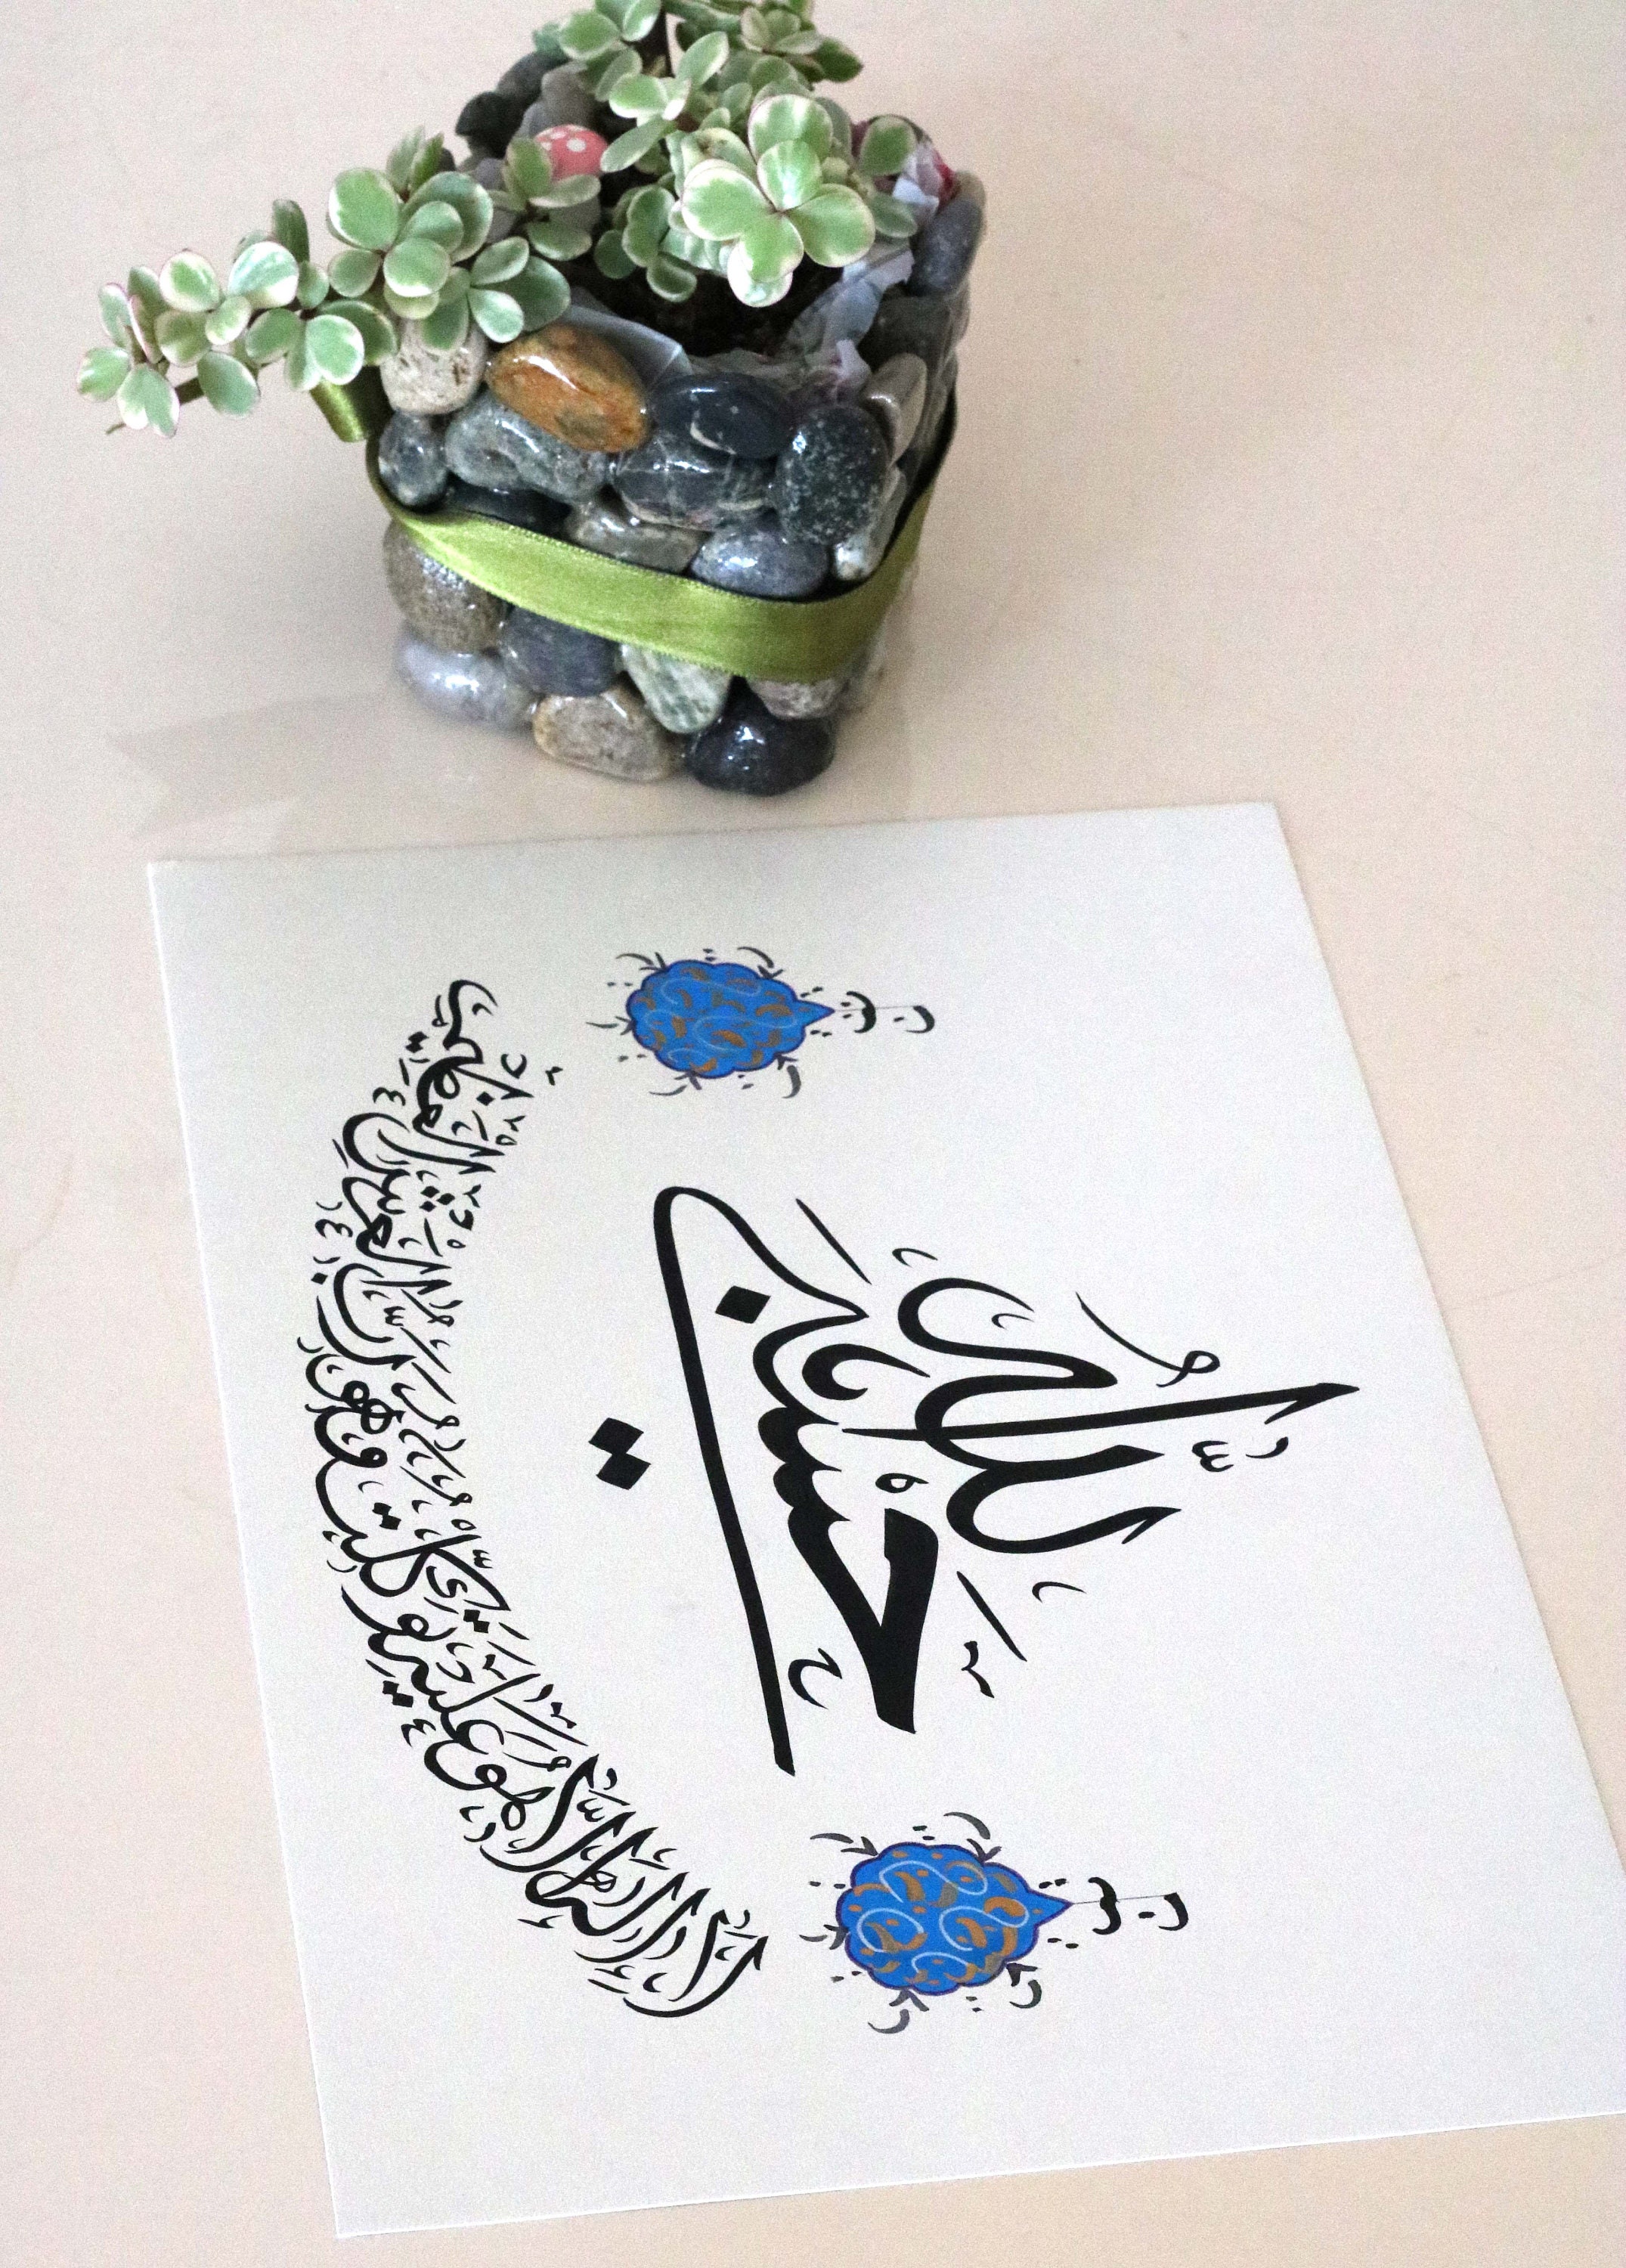 حَسْبِيَ اللَّهُ
لَا إِلَهَ إِلَّا هُوَ عَلَيْهِ تَوَكَّلْتُ وَهُوَ رَبُّ الْعَرْشِ الْعَظِيمِ